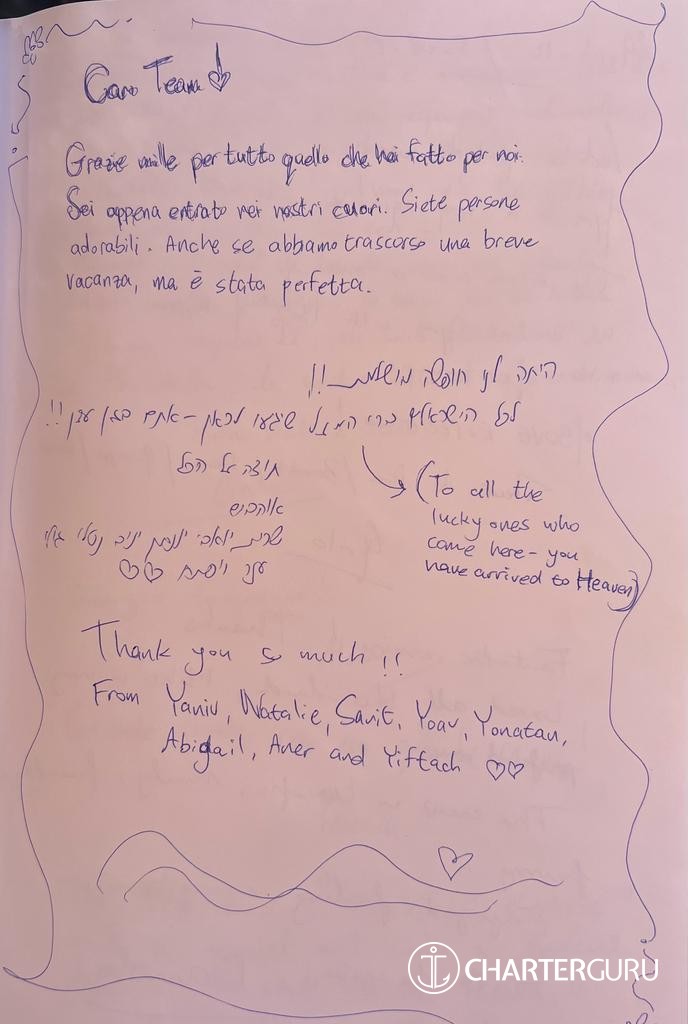 Caro Team
Grazie mille per tutto quello che hai fatto per noi.
Sei appena entrato nei nostri cuori. Siete persone
adorabili. Anche se abbiamo trascorso una breve
vacanza, ma è stata perfetta.
היתה לנו חופשה מושלמת!!
לכל הישראלים ברי המזל שיגעו לכאן – אתם בגן עדן!!
תודה על הכל
אוהבים
שרית יואב יונתן יניב נטלי
ענר ויפתח
(To all the
lucky ones who
come here - you
have arrived to Heaven)
Thank you so much!!
From Yaniv, Natalie, Sarit, Yoav, Yonatan,
Abigail, Aner and Yiftach
CHARTERGURU